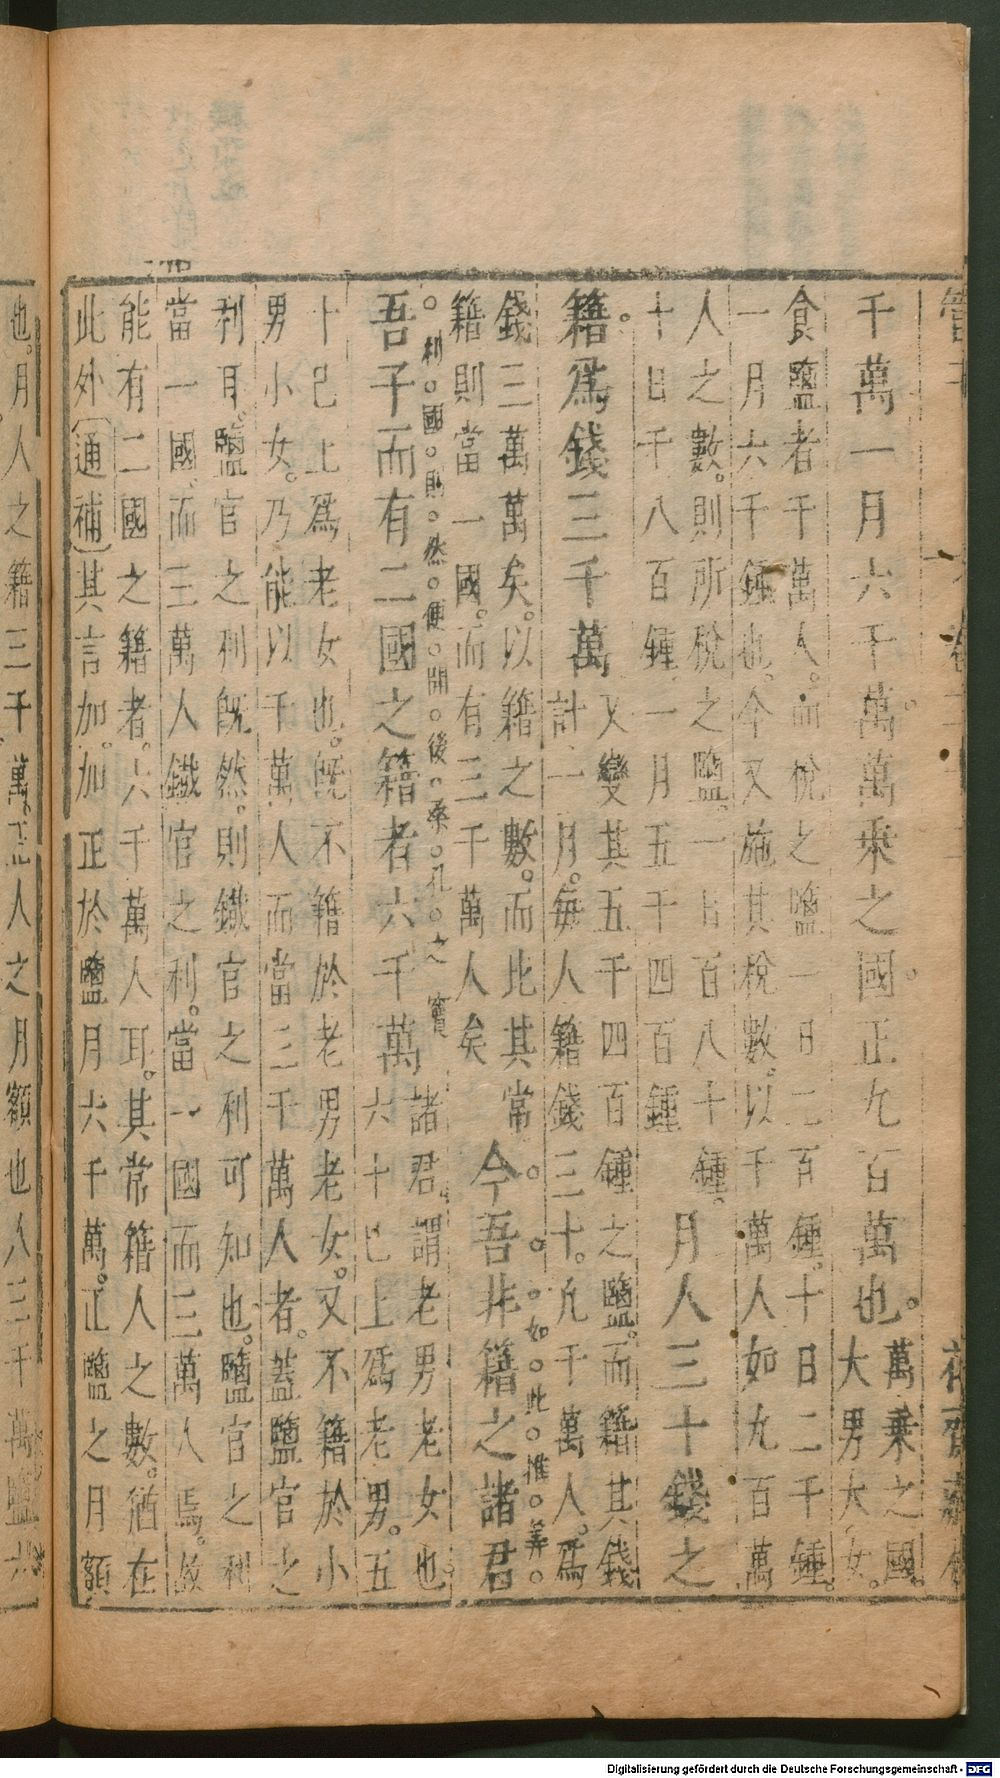 千萬一月六千萬萬乘之國正九百萬也。萬乘之國。大男大女。
食鹽者千萬人。而稅之鹽一日二百鍾。十日二千鍾。
一月六千鍾也。今又施其稅數。以千萬人如九百萬
人之數。則所稅之鹽。一日百八十鍾。
十日千八百鍾。一月五千四百鍾
月人三十錢之
籍。爲錢三千萬又變其五千四百鍾之鹽。而籍其錢
計一月。每人籍錢三十。凡千萬人。爲
錢三萬萬矣。以籍之數。而此其常
籍則當一國。而有三千萬人矣
今吾非籍之諸君
如此推筭
吾子而有二國之籍者六千萬諸君謂老男老女也
六十已上爲老男。五
利國則然便開後桑孔之竇
十已上爲老女也。旣不籍於老男老女。又不籍於小
男小女。乃能以千萬人而當三千萬人者。蓋鹽官之
利耳。鹽官之利旣然。則鐵官之利可知也。鹽官之利
當一國。而三萬人鐵官之利。當一國而三萬人焉。故
能有二國之籍者。六千萬人耳。其常籍人之數。猶在
此外〔通補〕其言加。加正於鹽月六千萬。正鹽之月額
也。月人之籍三千萬。正人之月額也人三千萬鹽六
Digitalisierung gefördert durch die Deutsche Forschungsgemeinschaft - DFG